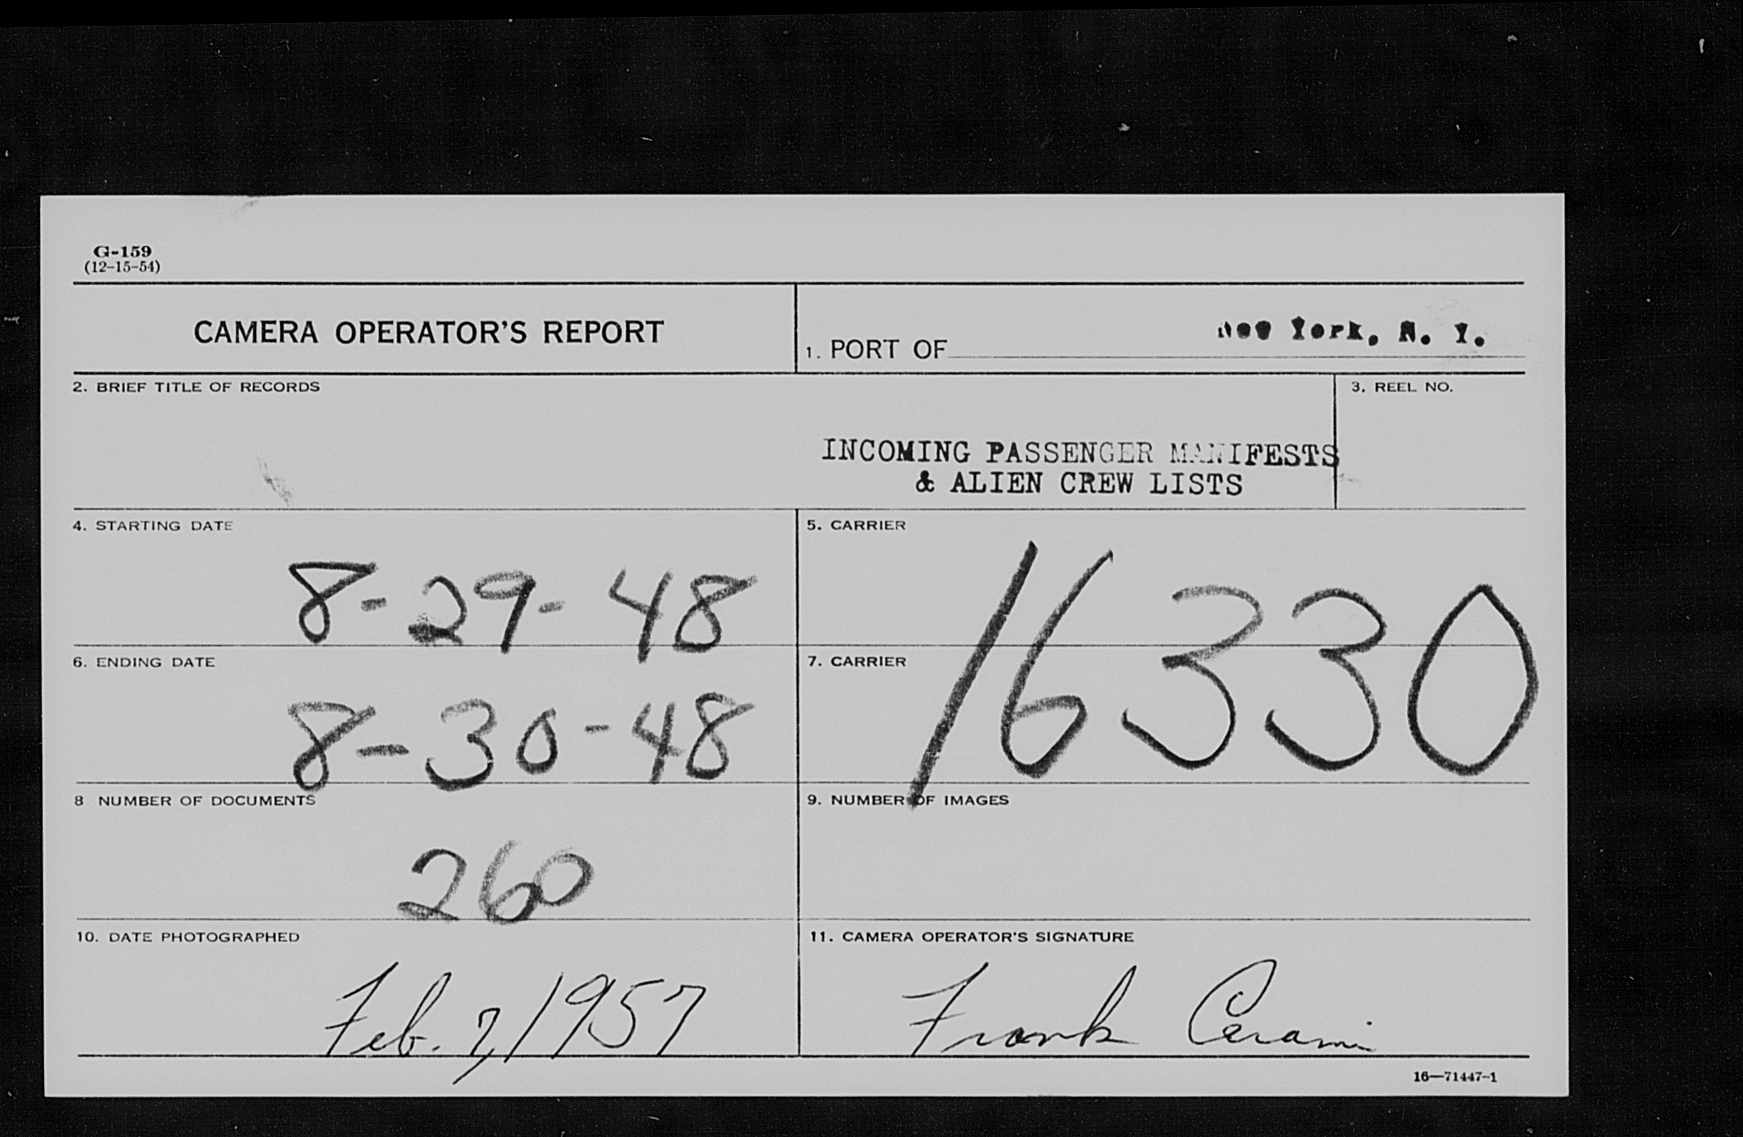 G-159
(12-15-54)
CAMERA OPERATOR'S REPORT
1. PORT OF New York, N. Y.
2. BRIEF TITLE OF RECORDS
3. REEL NO.
INCOMING PASSENGER MANIFESTS
& ALIEN CREW LISTS
4. STARTING DATE
8-29-48
5. CARRIER
16330
6. ENDING DATE
8-30-48
7. CARRIER
8 NUMBER OF DOCUMENTS
260
9. NUMBER OF IMAGES
10. DATE PHOTOGRAPHED
Feb. 7, 1957
11. CAMERA OPERATOR'S SIGNATURE
Frank Cerami
16—71447-1